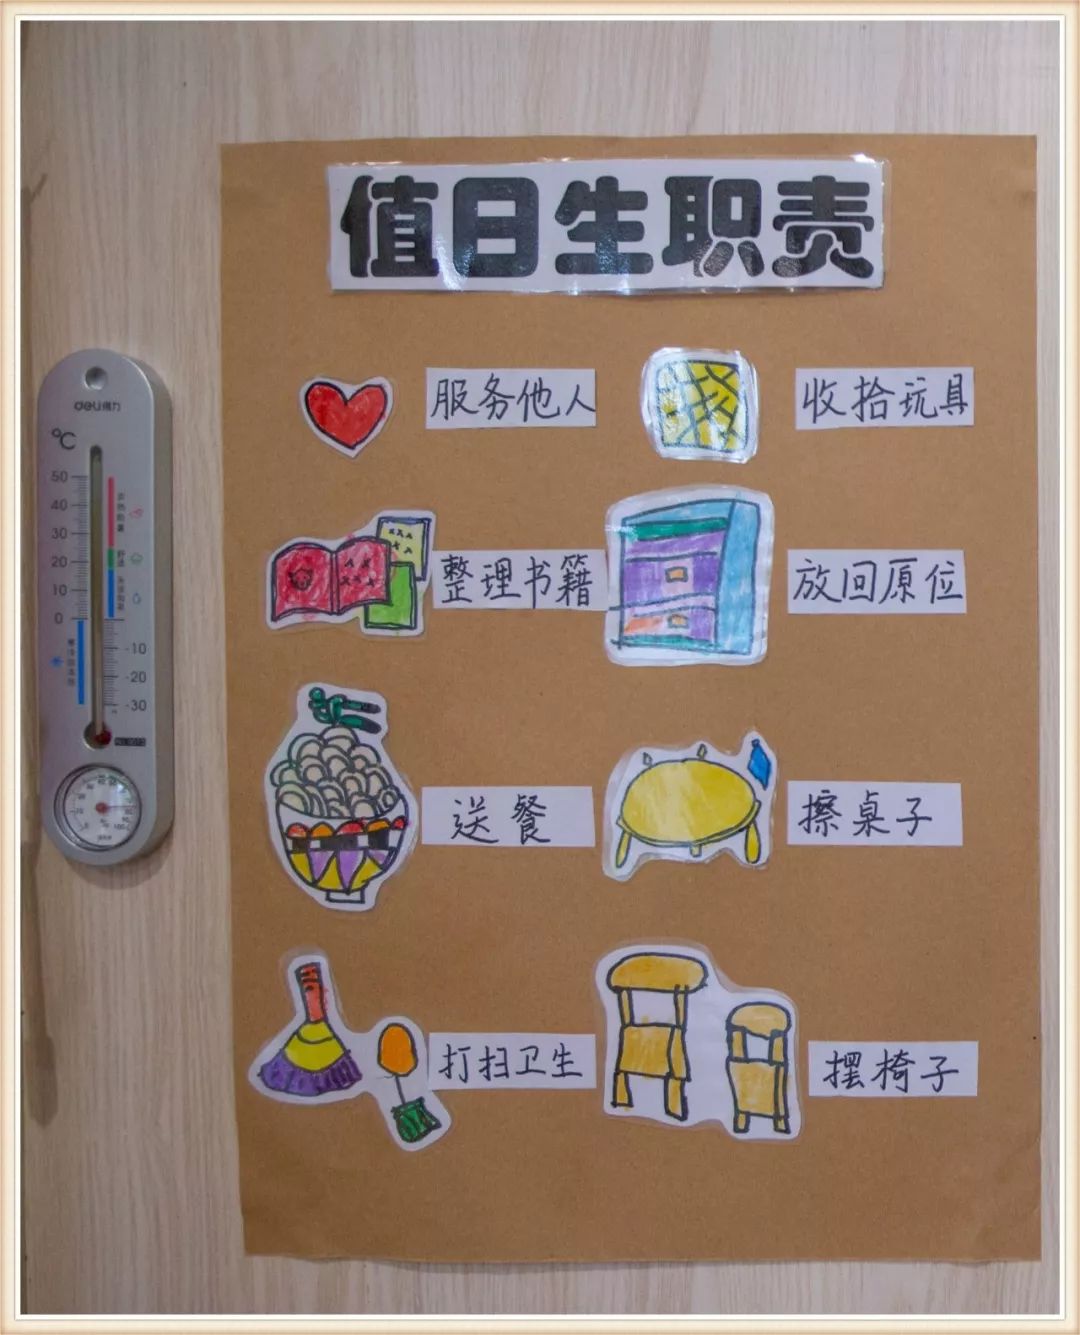 值日生职责
服务他人
收拾玩具
整理书籍
放回原位
送餐
擦桌子
打扫卫生
摆椅子
deli得力
℃
50
40
30
20
10
0
-10
-20
-30